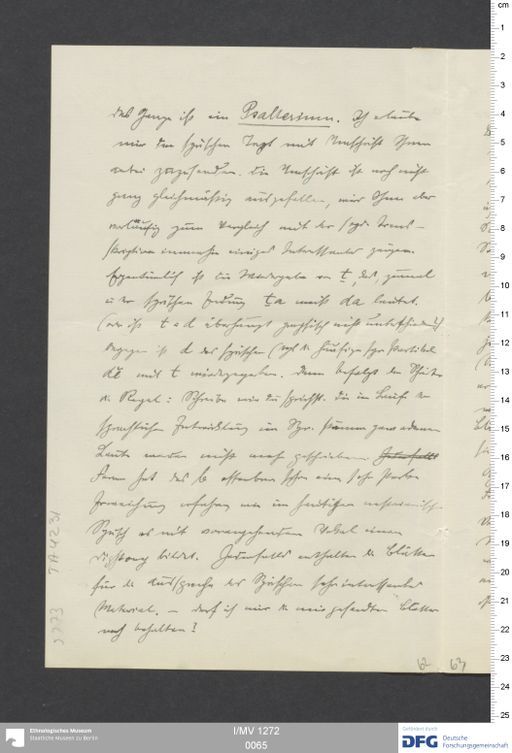 das Ganze ist ein Psalterium. Ich erlaube
mir den syrischen Text mit Umschrift Ihnen
anbei zuzusenden. Die Umschrift ist noch nicht
ganz gleichmäßig ausgefallen, wird Ihnen aber
vorläufig zum Vergleich mit der sogd. Trans-
skription immerhin einiges Interessantes zeigen.
Eigentümlich ist die Wiedergabe von t, das, zumal
in der syrischen Endung ta meist da lautet.
(oder ist t = d überhaupt graphisch nicht unterschieden?)
Dagegen ist d des syrischen (vgl. die häufige syr. Partikel
dĕ mit t wiedergegeben. Dann befolgt der Schreiber
die Regel: Schreibe wie du sprichst. Die im Laufe der
sprachlichen Entwicklung im Syr. stumm gewordenen
Laute werden nicht mehr geschrieben. Jedenfalls
Ferner hat das b offenbar schon eine sehr starke
Erweichung erfahren wie im heutigen nestorianischen
Syrisch es mit vorangehendem Vokal einen
Diphtong bildet. Jedenfalls enthalten die Blätter
für die Aussprache des Syrischen sehr interessantes
Material. – Darf ich mir die mir gesandten Blätter
noch behalten?
TA 4231
62 63
cm
1
2
3
4
5
6
7
8
9
10
11
12
13
14
15
16
17
18
19
20
21
22
23
24
25
Ethnologisches Museum
Staatliche Museen zu Berlin
I/MV 1272
0065
Gefördert durch
DFG Deutsche
Forschungsgemeinschaft